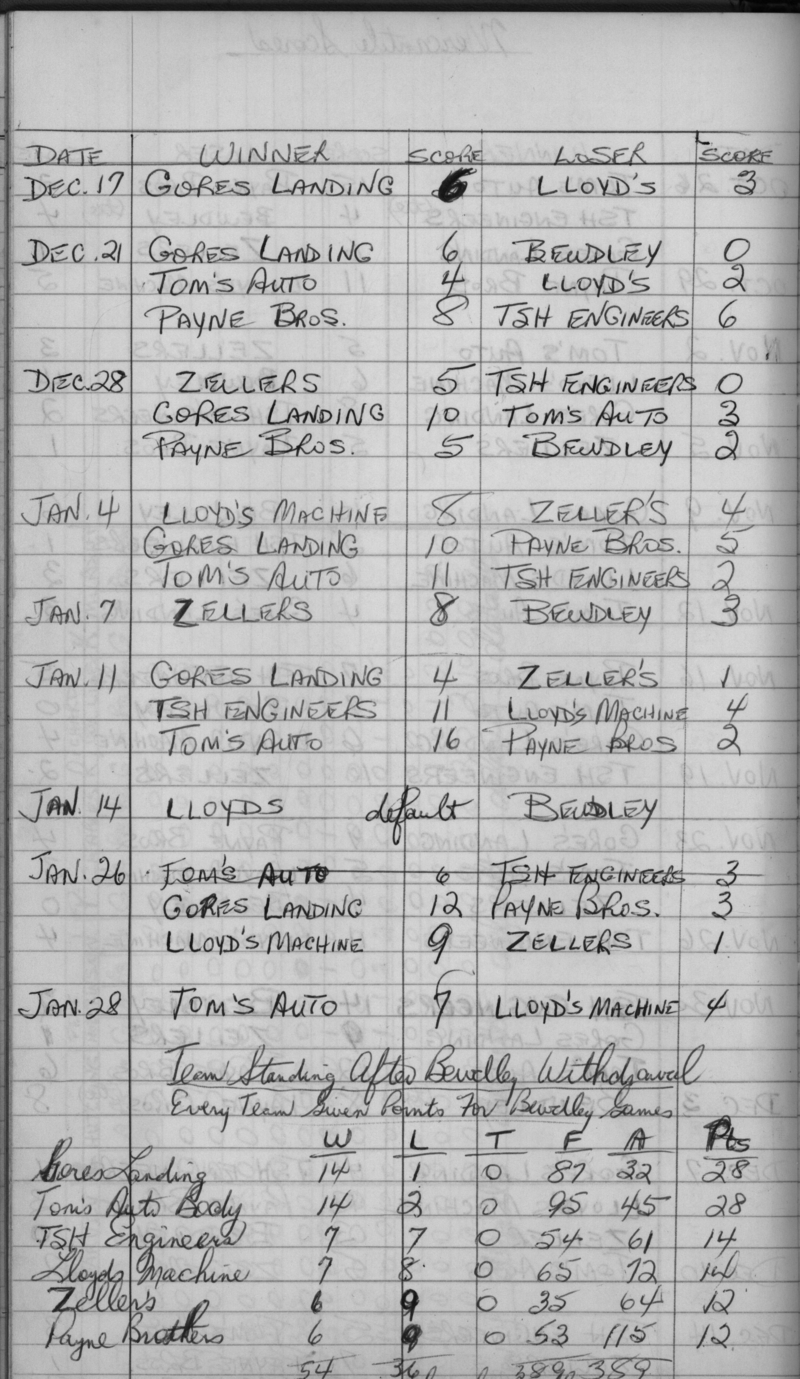 DATE WINNER SCORE LOSER SCORE
DEC. 17 GORES LANDING 6 LLOYD'S 3
DEC. 21 GORES LANDING 6 BEWDLEY 0
TOM'S AUTO 4 LLOYD'S 2
PAYNE BROS. 8 TSH ENGINEERS 6
DEC. 28 ZELLERS 5 TSH ENGINEERS 0
GORES LANDING 10 TOM'S AUTO 3
PAYNE BROS. 5 BEWDLEY 2
JAN. 4 LLOYD'S MACHINE 8 ZELLER'S 4
GORES LANDING 10 PAYNE BROS. 5
TOM'S AUTO 11 TSH ENGINEERS 2
JAN. 7 ZELLERS 8 BEWDLEY 3
JAN. 11 GORES LANDING 4 ZELLER'S 1
TSH ENGINEERS 11 LLOYD'S MACHINE 4
TOM'S AUTO 16 PAYNE BROS 2
JAN. 14 LLOYDS default BEWDLEY
JAN. 26 TOM'S AUTO 6 TSH ENGINEERS 3
GORES LANDING 12 PAYNE BROS. 3
LLOYD'S MACHINE 9 ZELLERS 1
JAN. 28 TOM'S AUTO 7 LLOYD'S MACHINE 4
Team Standing After Bewdley Withdrawal
Every Team Given Points For Bewdley Games
W L T F A Pts
Gores Landing 14 1 0 87 32 28
Tom's Auto Body 14 2 0 95 45 28
TSH Engineers 7 7 0 54 61 14
Lloyds Machine 7 8 0 65 72 14
Zeller's 6 9 0 35 64 12
Payne Brothers 6 9 0 53 115 12
54 36 389 389